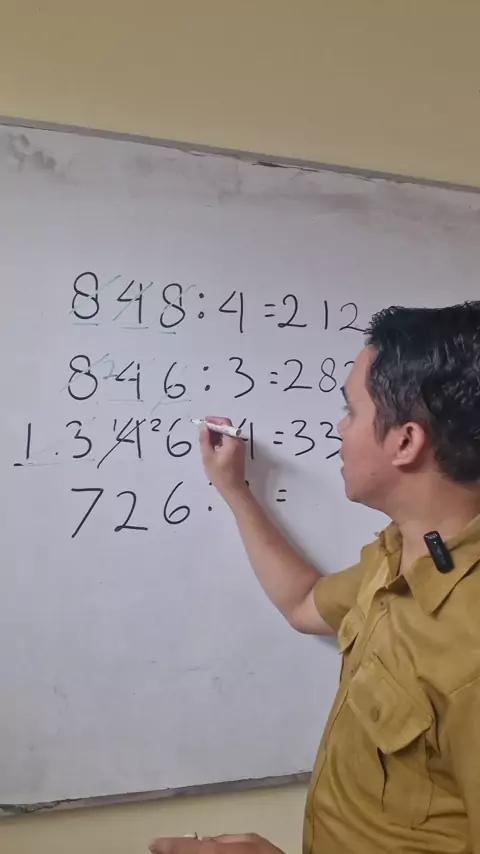 848:4=212
846:3=28
1.3¹4²6 4=33
726: =